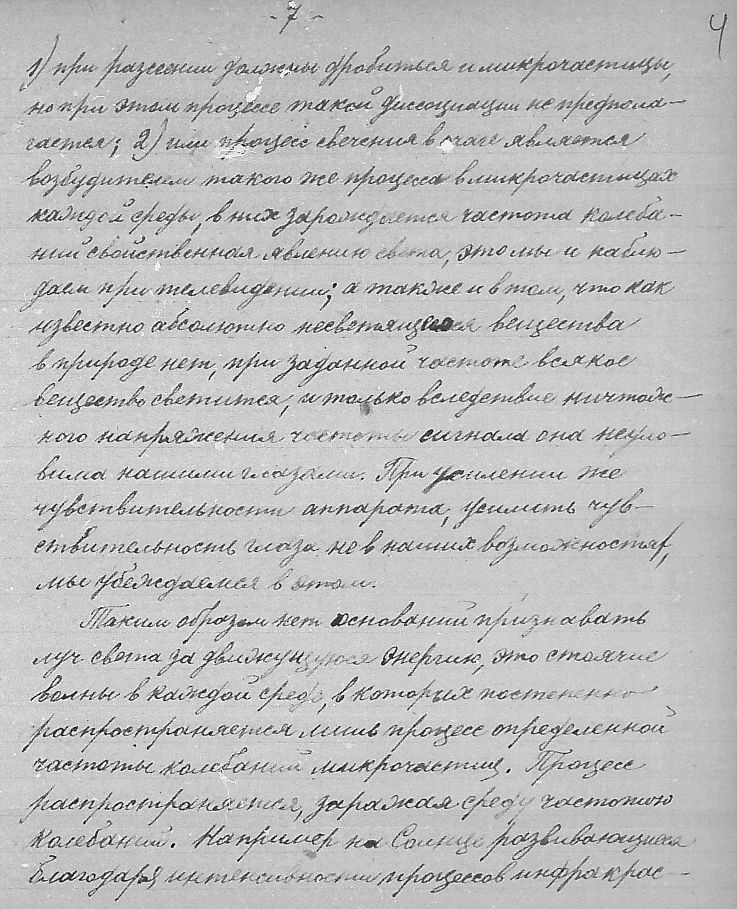 - 7 -
4
1) при разсеении должны дробиться и микрочастицы,
но при этом процессе такой диссоциации не предпола-
гается; 2) или процесс свечения в очаге является
возбудителем такого же процесса в микрочастицах
каждой среды, в них зарождается частота колеба-
ний свойственная явлению света, это мы и наблю-
даем при телевидении; а также и в том, что как
известно абсолютно несветящегося вещества
в природе нет, при заданной частоте всякое
вещество светится, и только вследствие ничтож-
ного напряжения частоты сигнала она неуло-
вима нашими глазами. При усилении же
чувствительности аппарата, усилить чув-
ствительность глаза не в наших возможностях,
мы убеждаемся в этом.
Таким образом нет оснований признавать
луч света за движущуюся энергию, это стоячие
волны в каждой среде, в которых постепенно
распространяется лишь процесс определенной
частоты колебаний микрочастиц. Процесс
распространяется, заражая среду частотою
колебаний. Например на Солнце развивающиеся
благодаря интенсивности процессов инфракрас-